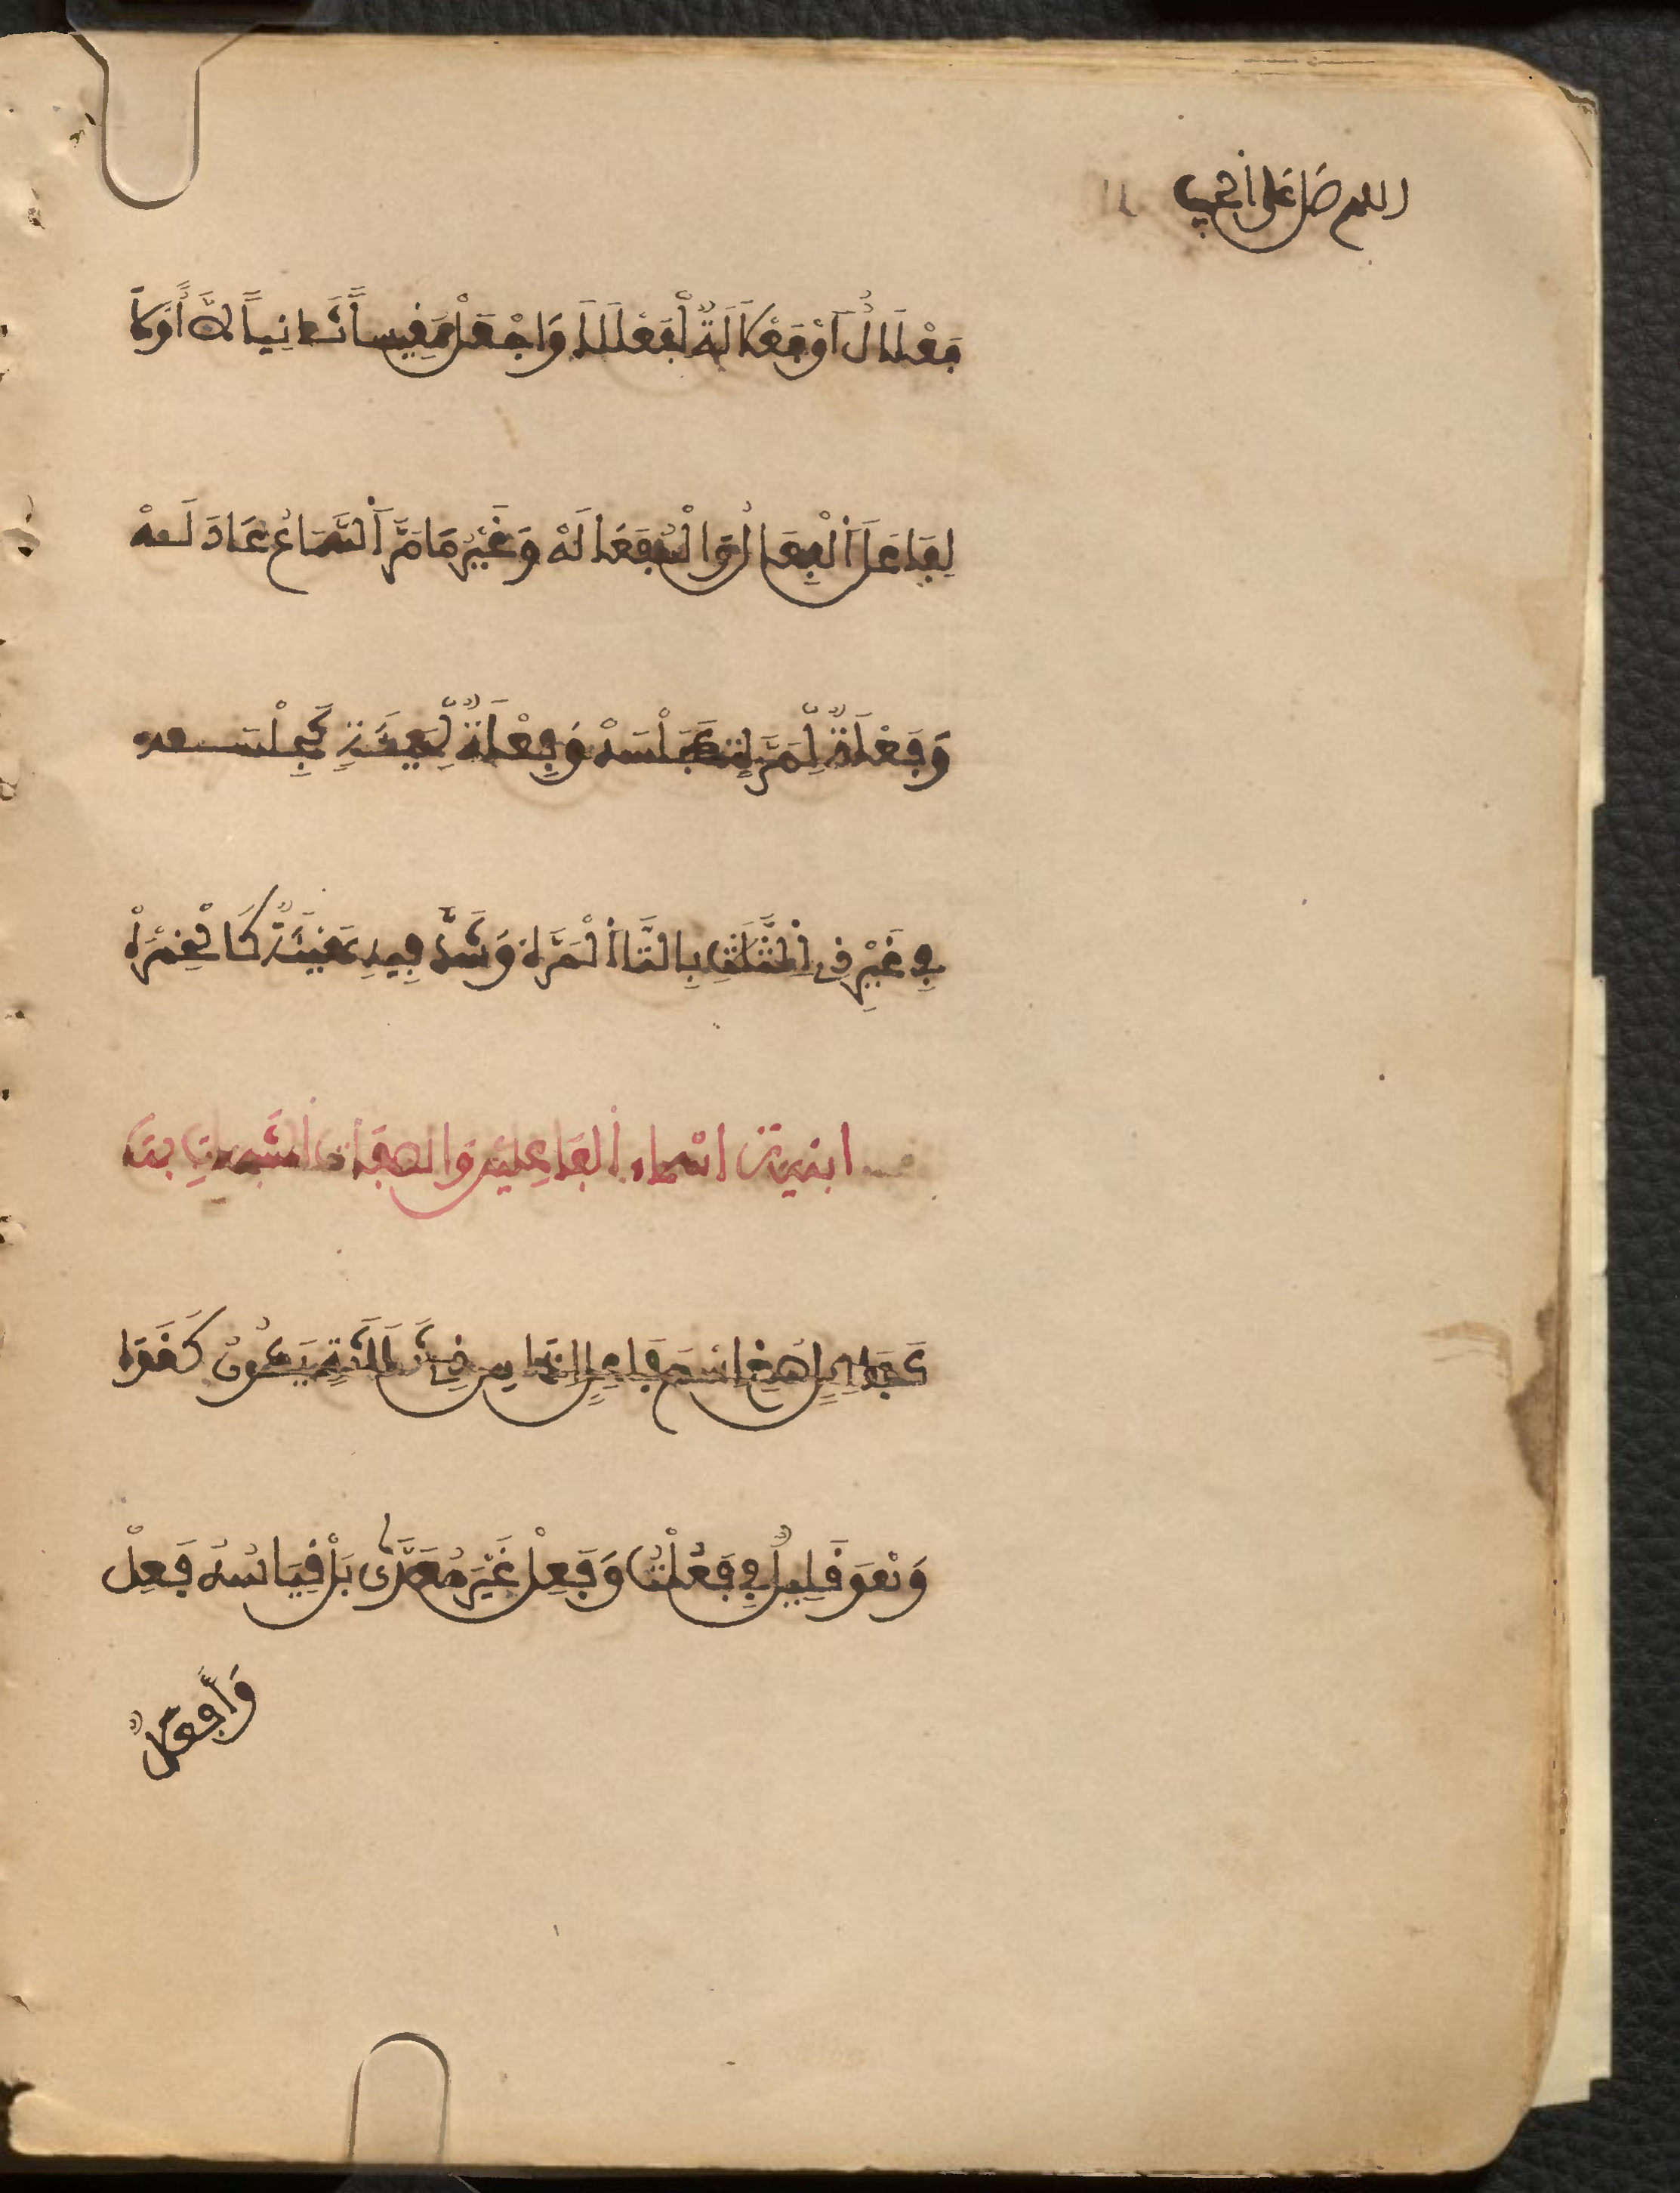 اللهم صل على الحبيب
فِعْلَالٌ أَوْ فَعْلَلَةٌ لِفَعْلَلَا وَاجْعَلْ مَقِيساً ثَانِياً لَا أَوَّلَا
لِفَاعَلَ الْفِعَالُ وَالْمُفَاعَلَهْ وَغَيْرُ مَا مَرَّ السَّمَاعُ عَادَلَهْ
وَفَعْلَةٌ لِمَرَّةٍ كَجَلْسَهْ وَفِعْلَةٌ لِهَيْئَةٍ كَجِلْسَهْ
فِي غَيْرِ ذِي الثَّلَاثِ بِالتَّا الْمَرَّهْ وَشَذَّ فِيهِ هَيْئَةٌ كَالْخِمْرَهْ
ابنية اسماء الفاعلين والصفات المشبهات بها
كَفَاعِلٍ صُغِ اسْمَ فَاعِلٍ إِذَا مِنْ ذِي ثَلَاثَةٍ يَكُونُ كَغَذَا
وَهْوَ قَلِيلٌ فِي فَعُلْتُ وَفَعِلْ غَيْرَ مُعَدًّى بَلْ قِيَاسُهُ فَعِلْ
وَأَفْعَلٌ